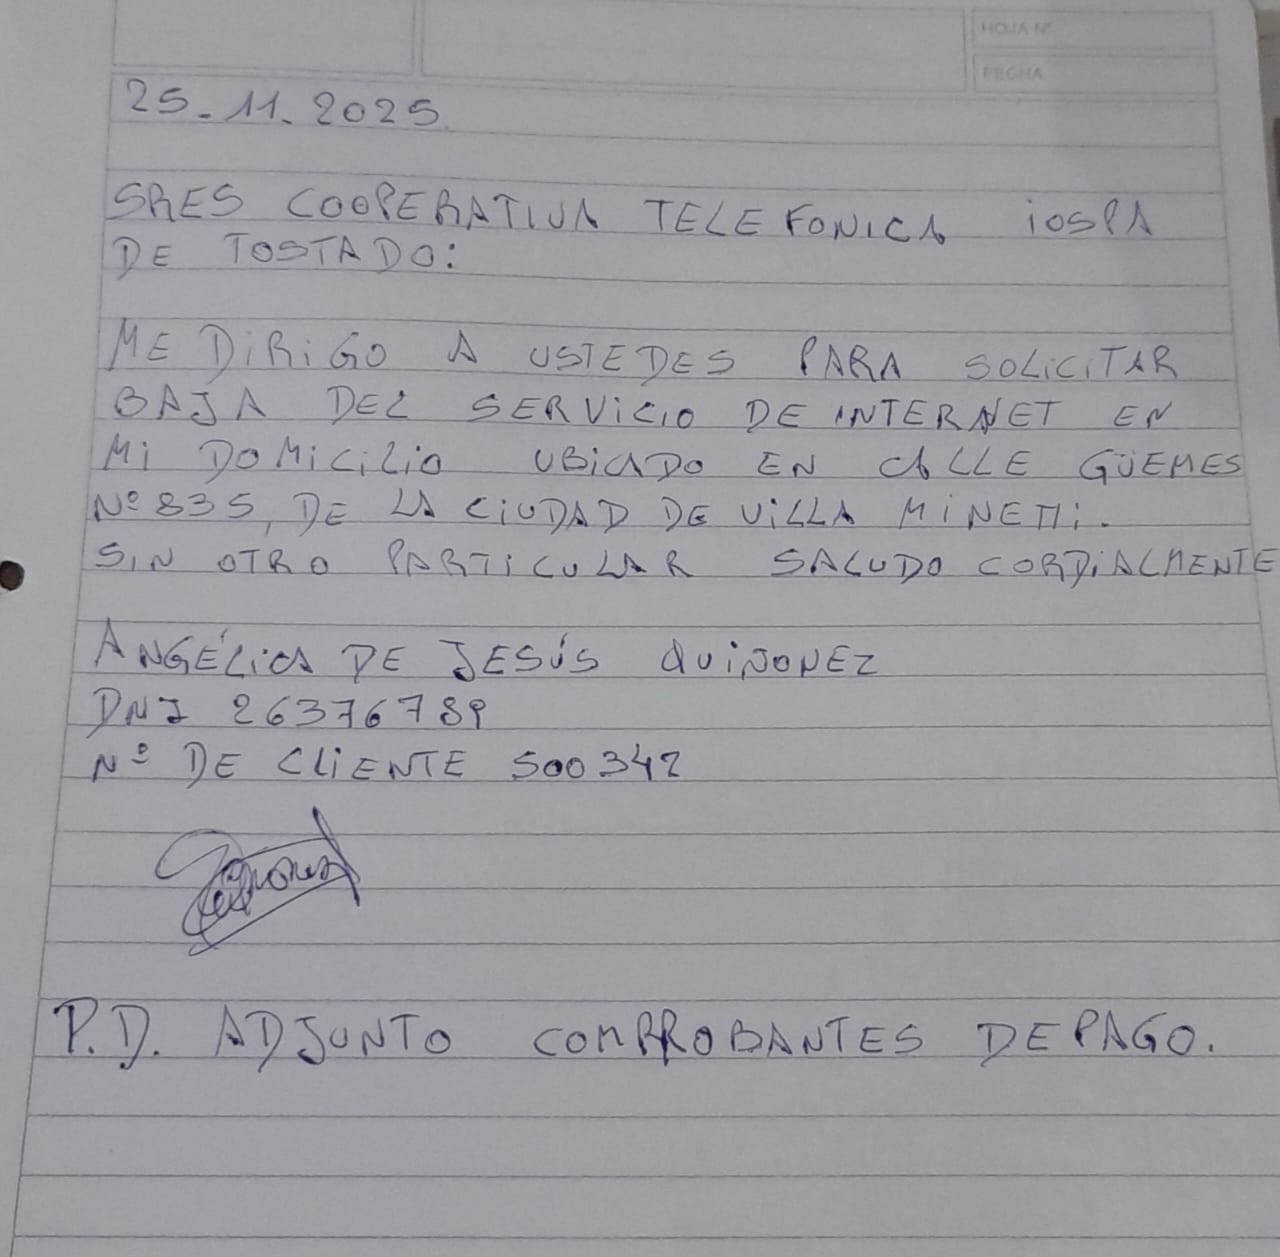 HOJA Nº
FECHA
25-11-2025
SRES COOPERATIVA TELEFONICA iOSPA
DE TOSTADO:
ME DIRIGO A USTEDES PARA SOLICITAR
BAJA DEL SERVICIO DE INTERNET EN
MI DOMICILIO UBICADO EN CALLE GÜEMES
Nº 835, DE LA CIUDAD DE VILLA MINETTI.
SIN OTRO PARTICULAR SALUDO CORDIALMENTE
ANGÉLICA DE JESÚS QUIÑONEZ
DNI 26376789
Nº DE CLIENTE 500342
P.D. ADJUNTO COMPROBANTES DE PAGO.